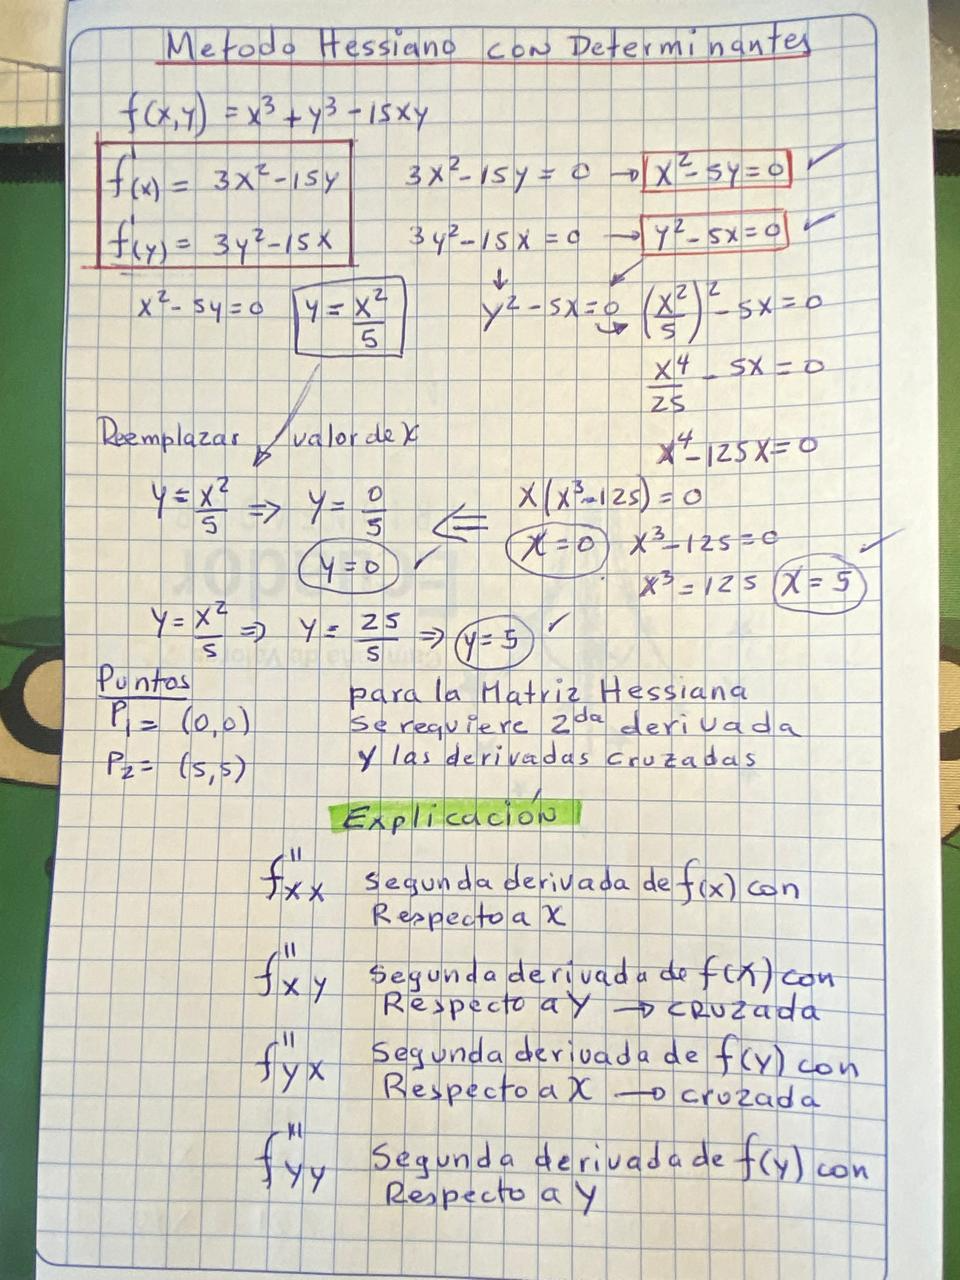 Metodo Hessiano con Determinantes
f(x,y) = x³ + y³ - 15xy
f'(x) = 3x² - 15y   3x² - 15y = 0 → x² - 5y = 0 ✓
f'(y) = 3y² - 15x   3y² - 15x = 0 → y² - 5x = 0 ✓
x² - 5y = 0   y = x²/5   y² - 5x = 0   (x²/5)² - 5x = 0
x⁴/25 - 5x = 0
Reemplazas valor de x   x⁴ - 125x = 0
y = x²/5 ⇒ y = 0/5 ⇐ x(x³ - 125) = 0
y = 0 ✓   x = 0   x³ - 125 = 0
x³ = 125   x = 5 ✓
y = x²/5 ⇒ y = 25/5 ⇒ y = 5 ✓
Puntos   para la Matriz Hessiana
P₁ = (0,0)   se requiere 2da derivada
P₂ = (5,5)   y las derivadas cruzadas
Explicación
f''xx   segunda derivada de f(x) con
Respecto a x
f''xy   segunda derivada de f(x) con
Respecto a y → cruzada
f''yx   segunda derivada de f(y) con
Respecto a x → cruzada
f''yy   segunda derivada de f(y) con
Respecto a y